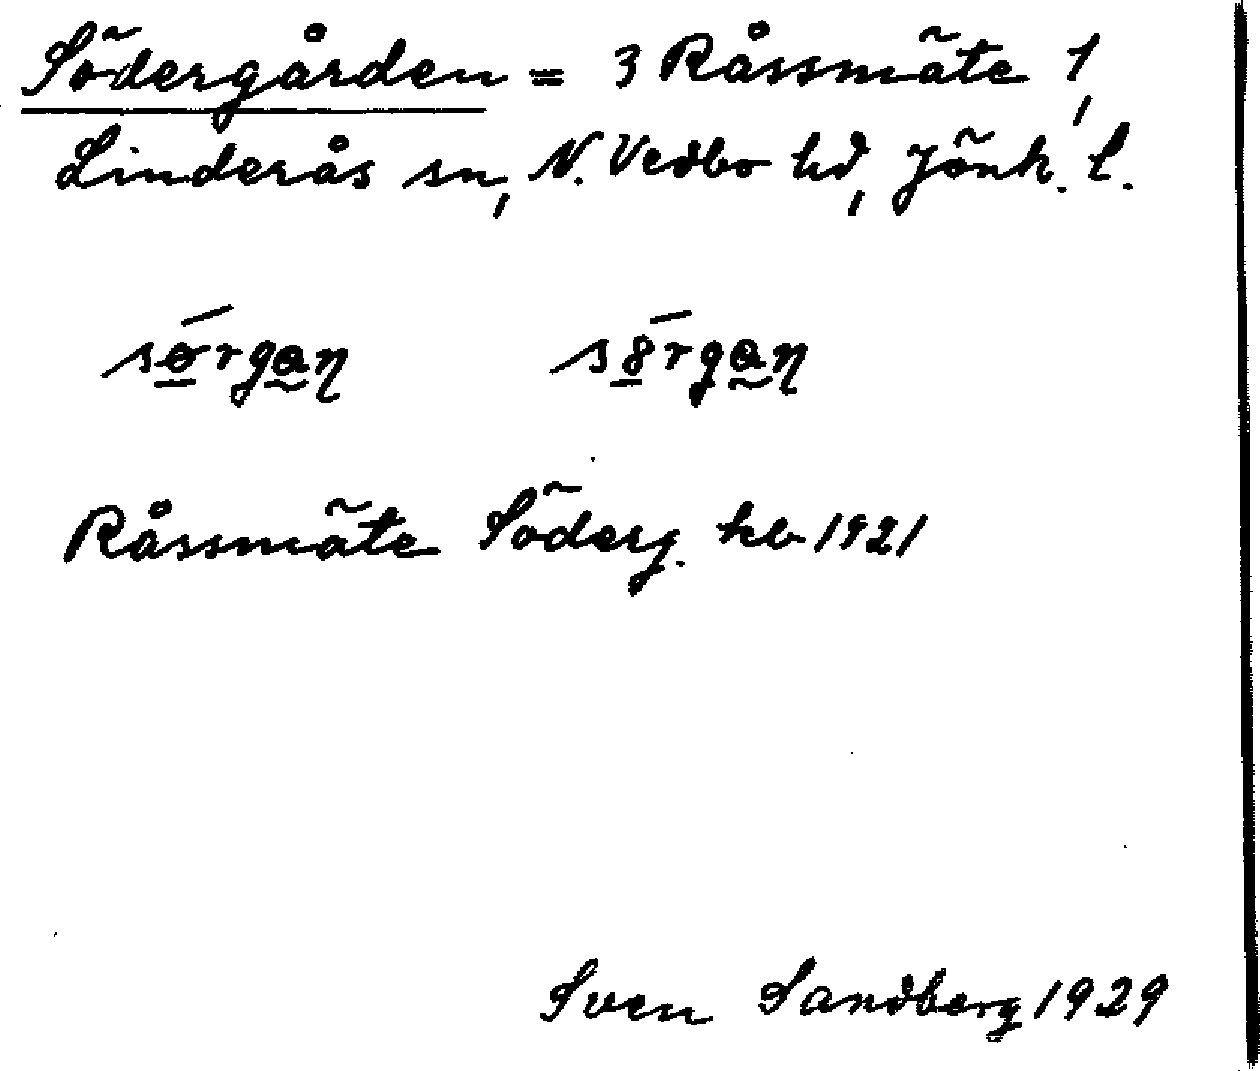 Södergården = 3 Råssmäte 1,
Linderås sn, N. Vedbo hd, Jönk. l.
Råssmäte Söderg. hb 1921
Sven Sandberg 1929